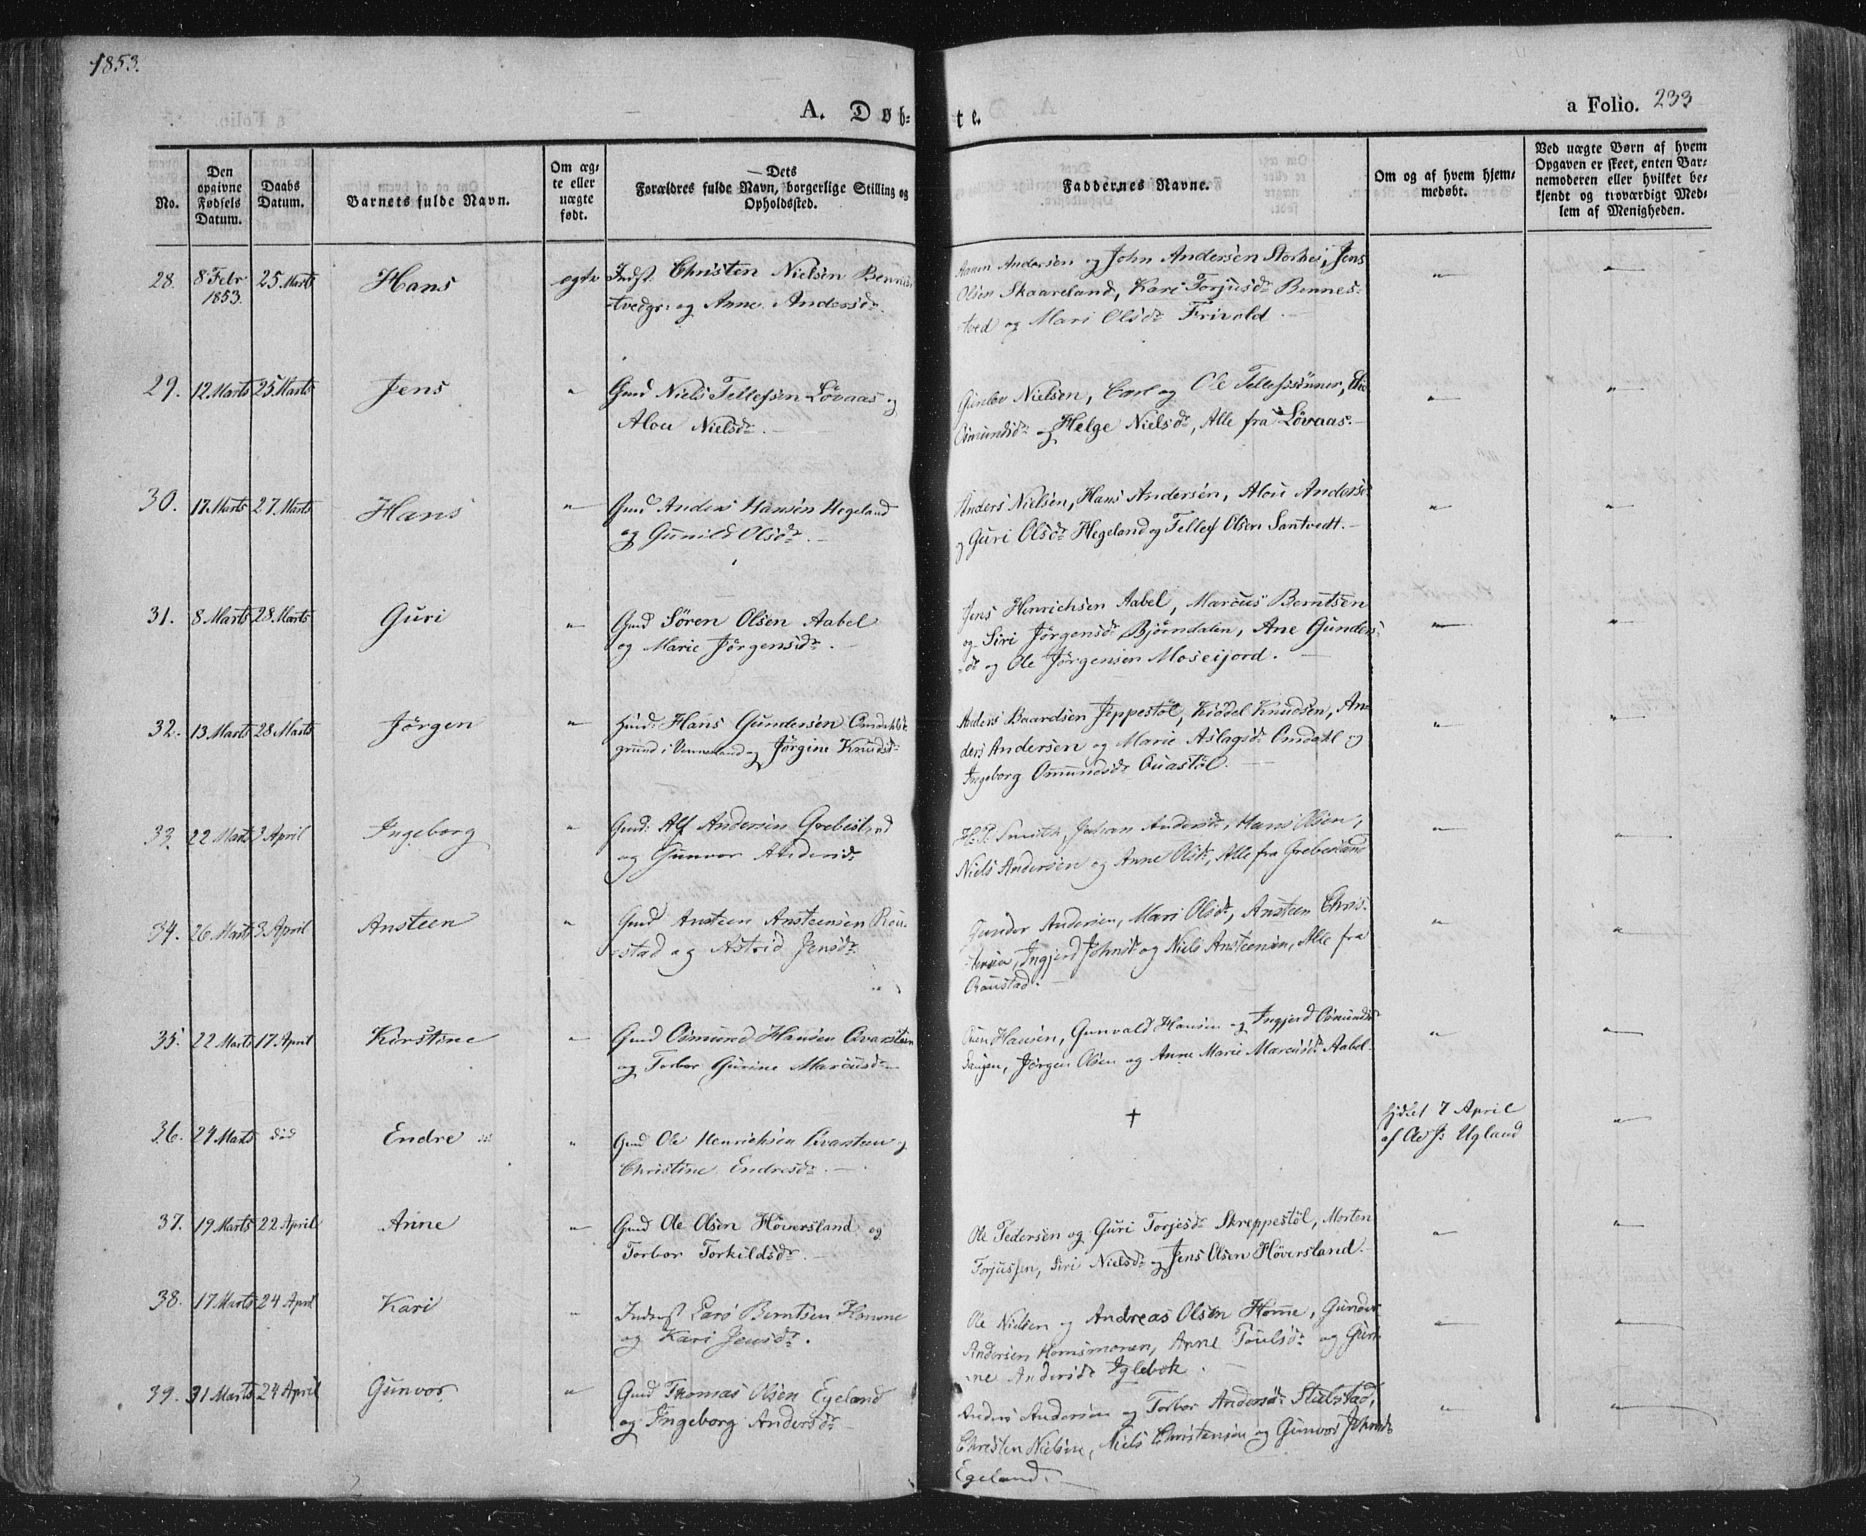 1853.
A. Døb-
te.
a Folio. 233
No.
Den opgivne Fødsels Datum.
Daabs Datum.
Barnets fulde Navn.
Om æg-te eller uægte født.
Dets Forældres fulde Navn, borgerlige Stilling og Opholdssted.
Faddernes Navne.
Om og af hvem hjem-medøbt.
Ved uægte Børn af hvem Opgaven er skeet, enten Bar-nemoderen eller hvilket be-kjendt og troværdigt Med-lem af Menigheden.
28. 8 Febr 1853. 25 Marts Hans ægte Indst. Christen Nielsen Bennes-
tvedgr: og Anne Andersdr.
Andersen og John Andersen Storhei, Jens
Olsen Skaareland, Kari Torjusdr Bennes-
tved og Mari Olsdr Frivold.
29. 12 Marts 25 Marts Jens " Gmd Niels Tellefsen Løvaas og
Alou Nielsdr.
Gunlov Nielsen, Carl og Ole Tellefssønner,
Osmundsdr og Helge Nielsdr, Alle fra Løvaas.
30. 17. Marts 27. Marts Hans " Gmd Anders Hansen Hegeland
og Gunild Olsdr.
Anders Nielsen, Hans Andersen, Alou Andersd
og Guri Olsdr Hegeland og Tellef Olsen Santvedt.
31. 8 Marts 28 Marts Guri " Gmd Sören Olsen Aabel
og Marie Jørgensdr.
Jens Henrichsen Aabel, Marcus Berntsen
og Siri Jørgensdr Bjørndalen, Ane Gunders-
dr og Ole Jørgensen Moseijord.
32. 13 Marts 28 Marts Jørgen " Hans Gundersen
grund i Venneland og Jørgine Knudsdr
Anders Baardsen Jeppestøl, Kiddel Knudsen, An-
ders Andersen og Marie Aslagsdr Omdahl og
Ingeborg Omundsdr Quastøl.
33. 22 Marts 3 April Ingeborg " Gmd: Alf Andersen Grebestad
og Gunvor Andersdr
H. P. Smith, Johan Andersdr, Hans Olsen,
Niels Andersen og Anne Olsdr, Alle fra
34. 26 Marts 3 April Ansteen " Gmd Ansteen Ansteensen Rou-
stad og Astrid Jensdr.
Gunder Andersen, Mari Olsdr, Ansteen Chris-
tensen, Ingjerd Johnsdr og Niels Ansteensen, Alle fra
Roustad.
35. 22 Marts 17 April Kirstine " Gmd Osmund Hansen Qvarsteen
og Torbor Gurine Marcusdr
Hansen, Gunvald Hansen og Ingjerd Osmundsdr
Jørgen Olsen og Anne Marie Marcusdr Aabel.
36. 24 Marts did Endre " Gmd Ole Henrichsen Qvarsteen og
Christine Endresdr.
†
hjdbt 7 April
af Ole Js Ugland
37. 19 Marts 22 April Anne " Gmd Ole Olsen Høversland og
Torbor Torkildsdr.
Ole Pedersen og Guri Torjesdr Skreppestøl, Morten
Torjussen, Siri Nielsdr og Jens Olsen Høversland.
38. 17 Marts 24 April Kari " Inderst Lars Berntsen Homme
og Kari Jensdr.
Ole Nielsen og Andreas Olsen Homme, Gunder
Andersen Homsmonen, Anne Poulsdr og Guri-
ne Andersdr Iglebæk.
39. 31 Marts 24 April Gunvor " Gmd Thomas Olsen Egeland
og Ingeborg Andersdr
Anders Andersen og Torbor Andersdr Stulstad,
Christen Nielsen, Niels Christensen og Gunvor Johnsdr
Egeland.